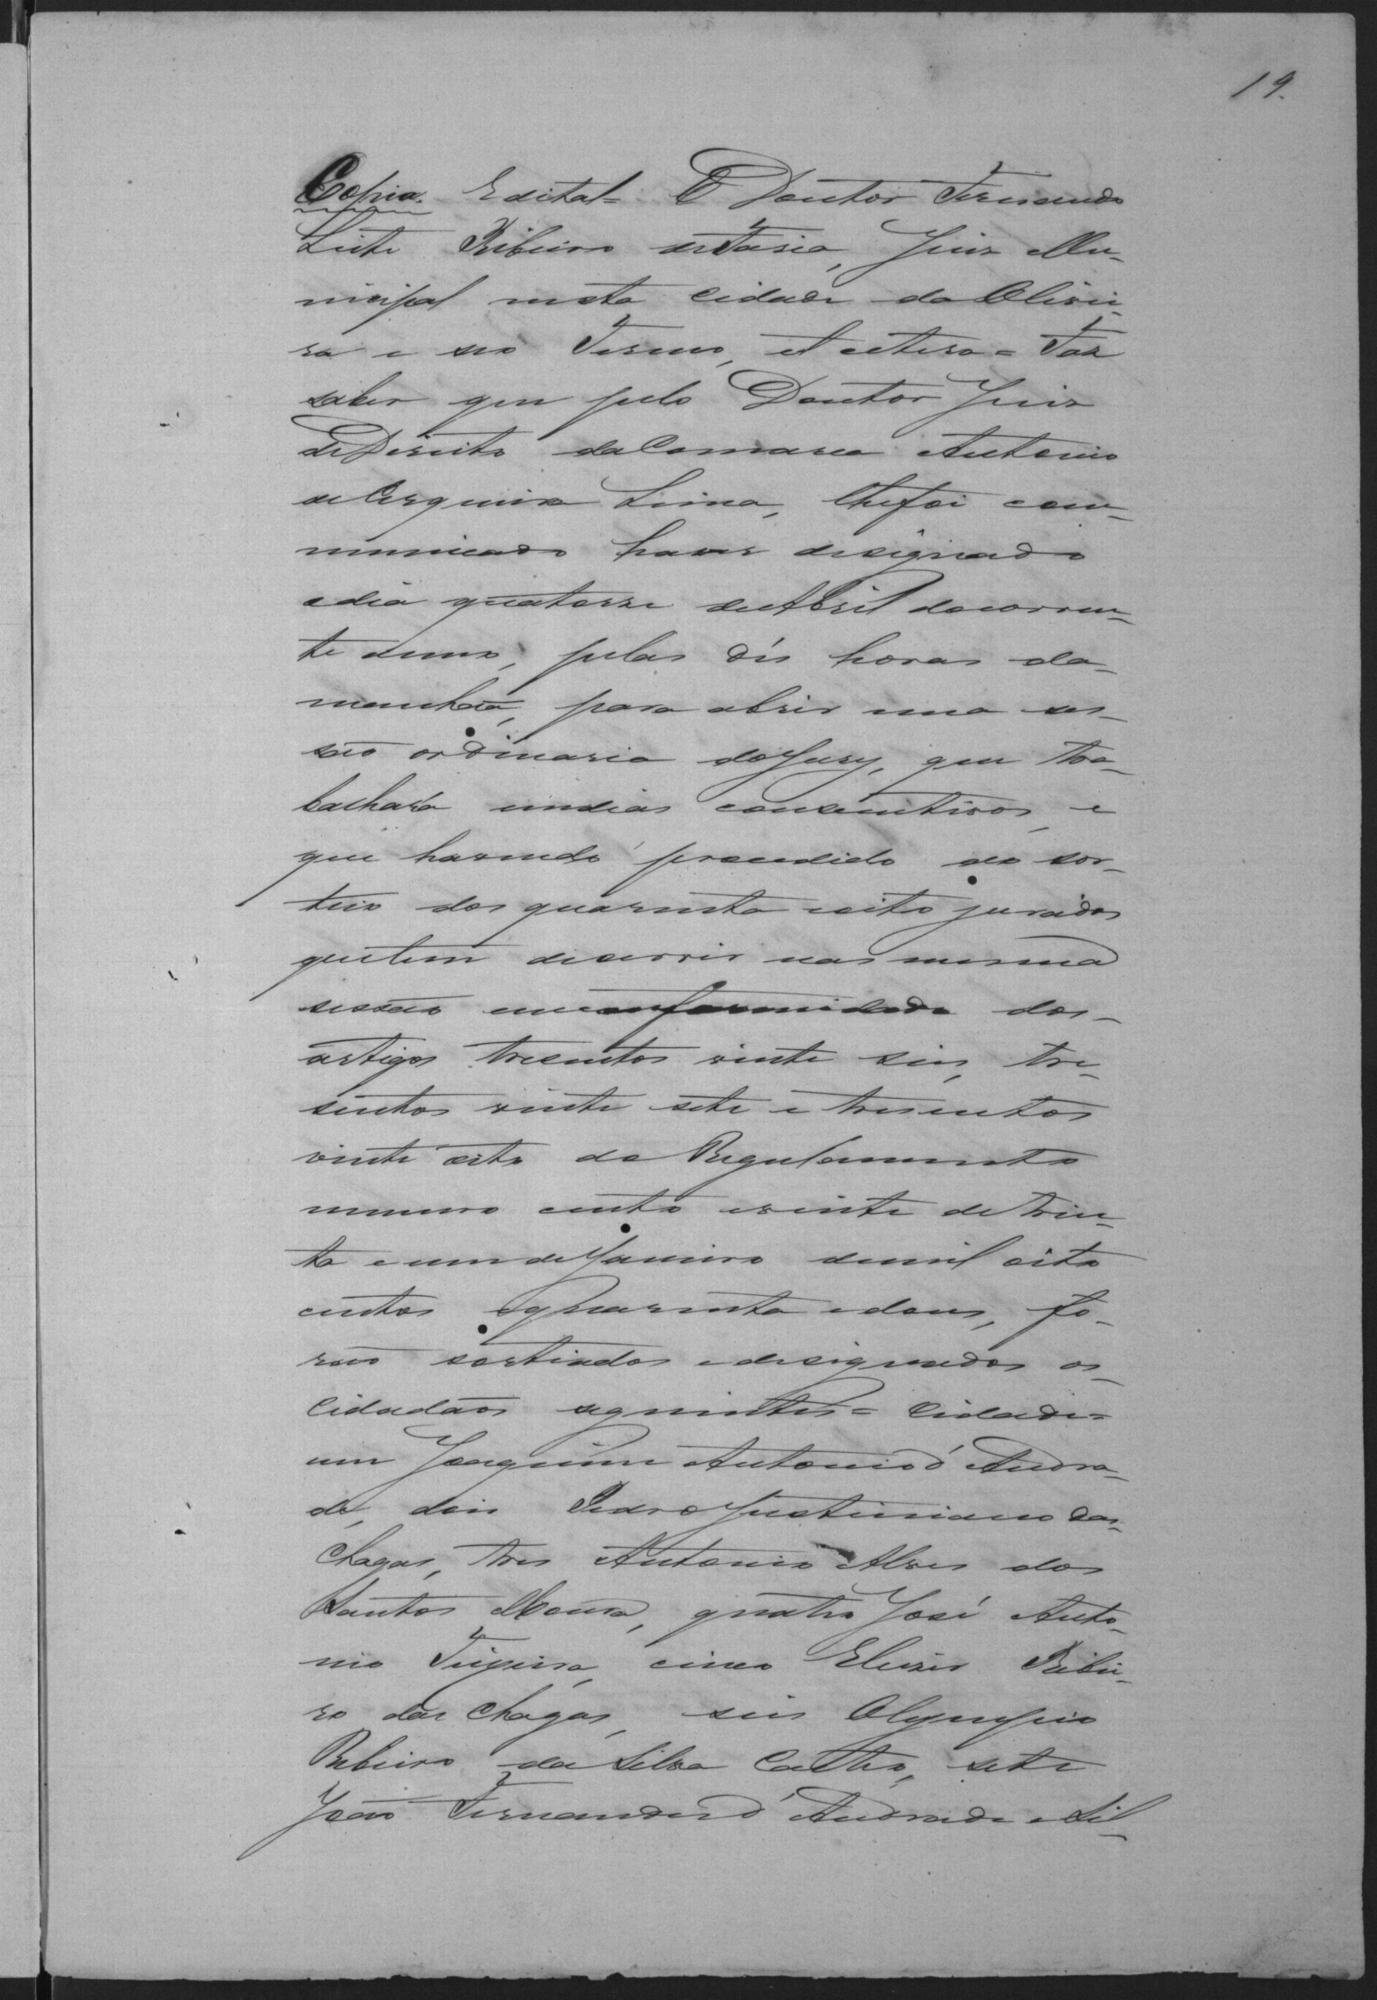 19.
Copia. Edital = O Doutor Fernando
Leite Ribeiro de Faria, Juiz Mu-
nicipal nesta cidade da Olivei-
ra e seo Termo, et cetera = Faz
saber que pelo Doutor Juiz
de Direito da Comarca Antonio
de Cerqueira Lima, lhe foi com-
municado haver designado
o dia quatorze de Abril do corren-
te anno, pelas dés horas da
manhaã, para abrir uma ses-
saõ ordinaria do Jury, que tra-
balhará em dias consecutivos, e
que havendo procedido ao sor-
teio dos quarenta e oito jurados
que tem de servir nas mesma
sessaõ em conformidade dos
artigos tresentos vinte seis, tre-
sentos vinte sete e tresentos
vinte oito do Regulamento
numero cento e vinte de trin-
ta e um de Janeiro de mil oito
centos e quarenta e dous, fo-
raõ sorteados e designados os
Cidadaõs seguintes = Cidade =
um Joaquim Antonio d'Andra-
de, dois Pedro Justiniano das
Chagas, tres Antonio Alves dos
Santos Moura, quatro José Anto-
nio Teixeira, cinco Eliezer Ribei-
ro das Chagas, seis Olympio
Ribeiro da Silva Castro, sete
Joaõ Fernandes d'Andrade e Sil-